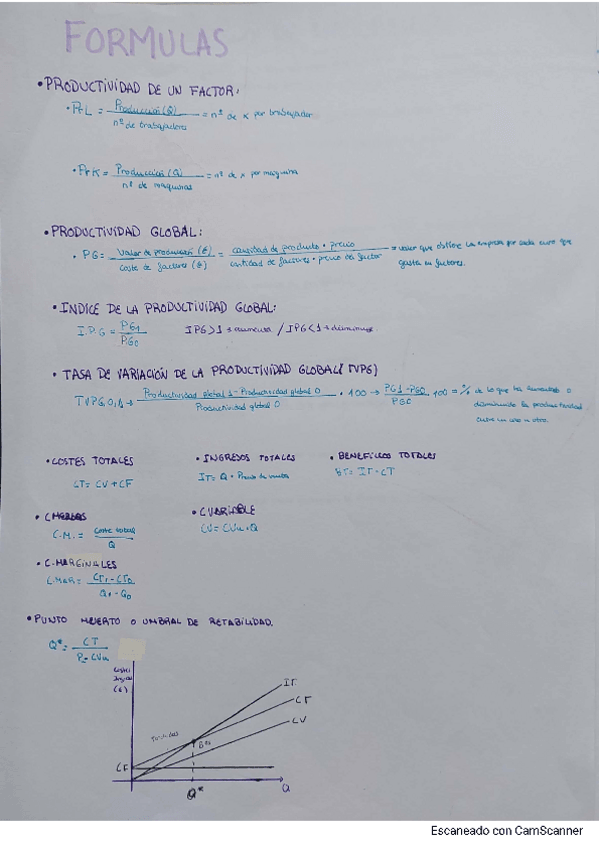 FORMULAS
• PRODUCTIVIDAD DE UN FACTOR:
• PrL = Producción (Q) / nº de trabajadores = nº de x por trabajador
• PrK = Producción (Q) / nº de maquinas = nº de x por maquina
• PRODUCTIVIDAD GLOBAL:
• PG = Valor de producción (€) / coste de factores (€) = cantidad de producto · precio / cantidad de factores · precio del factor = valor que obtiene la empresa por cada euro que
gasta en factores.
• INDICE DE LA PRODUCTIVIDAD GLOBAL:
I.P.G = PG1 / PG0 IPG>1 = aumenta / IPG<1 = disminuye
• TASA DE VARIACIÓN DE LA PRODUCTIVIDAD GLOBAL (TVPG)
TVPG 0,1 → Productividad global 1 - Productividad global 0 / Productividad global 0 · 100 → PG1 - PG0 / PG0 · 100 = % de lo que ha aumentado o
disminuido la productividad
entre un año u otro.
• COSTES TOTALES • INGRESOS TOTALES • BENEFICIOS TOTALES
CT = CV + CF IT = Q · Precio de venta BT = IT - CT
• C.MEDIOS • C.VARIABLE
C.M. = Coste total / Q CV = CVu · Q
• C.MARGINALES
C.MAR = CT1 - CT0 / Q1 - Q0
• PUNTO MUERTO O UMBRAL DE RETABILIDAD.
Q* = CT / P - CVu
Costes
(€)
IT
CT
CV
CF
Q* Q
Escaneado con CamScanner